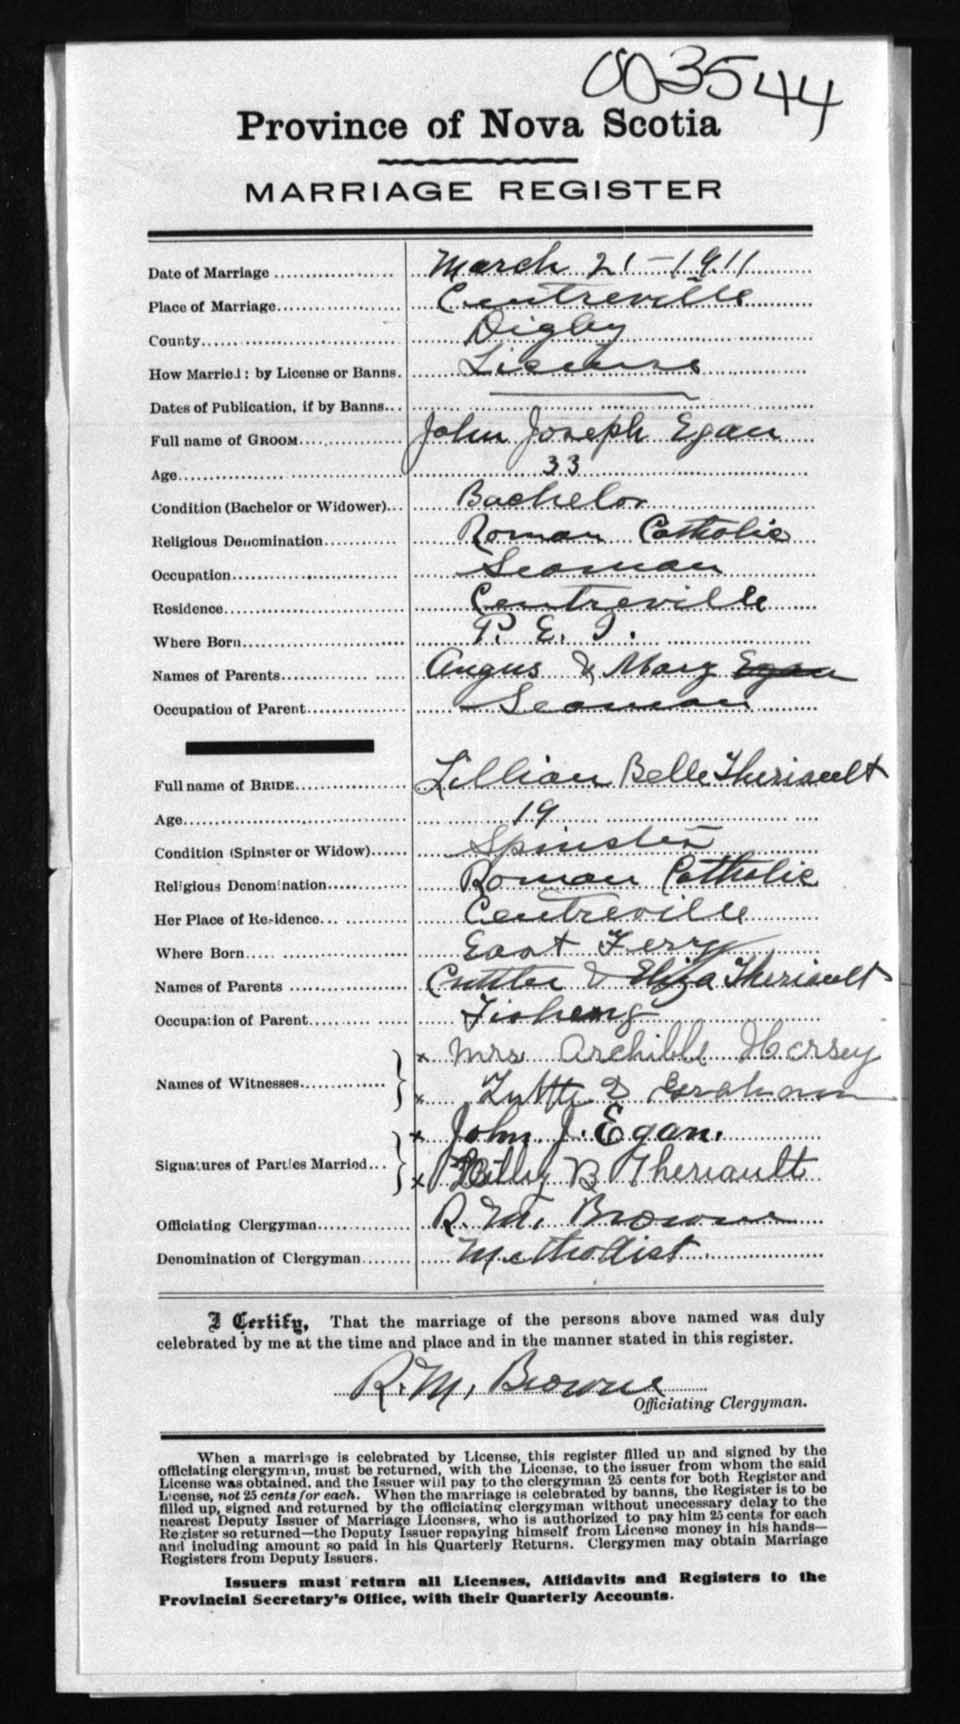 003544
Province of Nova Scotia
MARRIAGE REGISTER
Date of Marriage ........ March 21 - 1911
Place of Marriage........ Centreville
County........ Digby
How Married: by License or Banns. License
Dates of Publication, if by Banns... ——
Full name of GROOM........ John Joseph Egan
Age........ 33
Condition (Bachelor or Widower)... Bachelor
Religious Denomination........ Roman Catholic
Occupation........ Seaman
Residence........ Centreville
Where Born........ P. E. I.
Names of Parents........ Angus & Mary Egan
Occupation of Parent........ Seaman
Full name of BRIDE........ Lillian Belle Theriault
Age........ 19
Condition (Spinster or Widow)...... Spinster
Religious Denomination........ Roman Catholic
Her Place of Residence........ Centreville
Where Born........ East Ferry
Names of Parents ........ & Eliza Theriault
Occupation of Parent........ Fishing
x Mrs Archibld Hersey
Names of Witnesses........
x Graham
x John J. Egan.
Signatures of Parties Married...
x Lilly B Theriault
Officiating Clergyman........ R. M. Browne
Denomination of Clergyman........ Methodist
I Certify, That the marriage of the persons above named was duly
celebrated by me at the time and place and in the manner stated in this register.
R. M. Browne
Officiating Clergyman.
When a marriage is celebrated by License, this register filled up and signed by the
officiating clergyman, must be returned, with the License, to the issuer from whom the said
License was obtained, and the Issuer will pay to the clergyman 25 cents for both Register and
License, not 25 cents for each. When the marriage is celebrated by banns, the Register is to be
filled up, signed and returned by the officiating clergyman without unnecessary delay to the
nearest Deputy Issuer of Marriage Licenses, who is authorized to pay him 25 cents for each
Register so returned—the Deputy Issuer repaying himself from License money in his hands—
and including amount so paid in his Quarterly Returns. Clergymen may obtain Marriage
Registers from Deputy Issuers.
Issuers must return all Licenses, Affidavits and Registers to the
Provincial Secretary's Office, with their Quarterly Accounts.